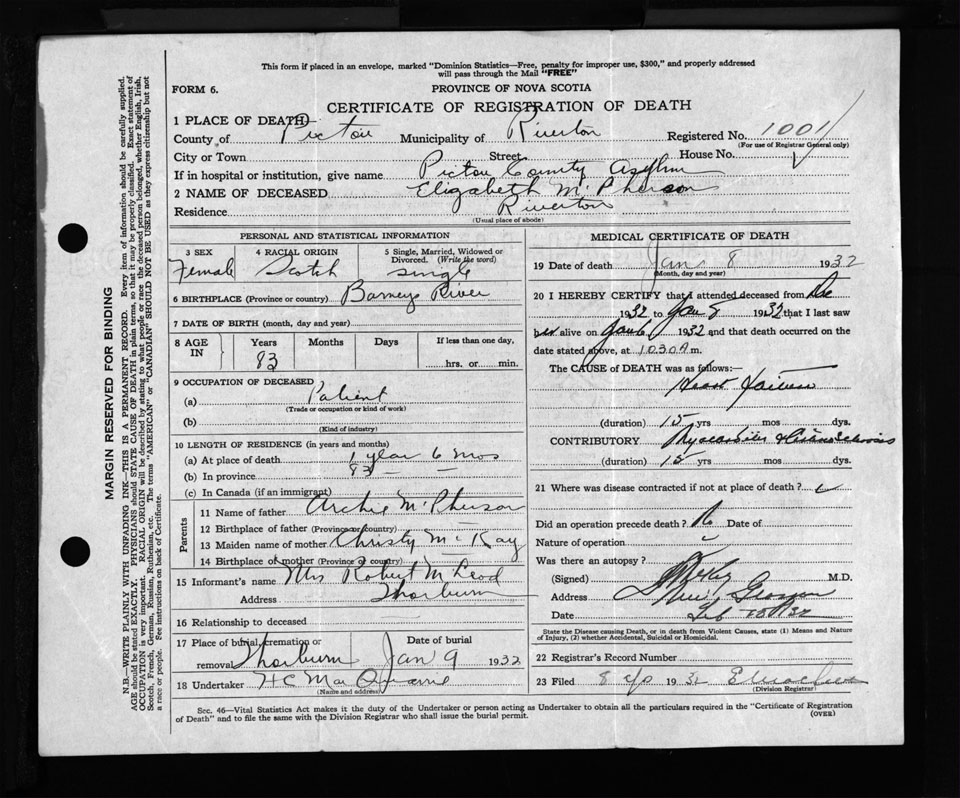 This form if placed in an envelope, marked "Dominion Statistics—Free, penalty for improper use, $300," and properly addressed
will pass through the Mail "FREE"
FORM 6.
PROVINCE OF NOVA SCOTIA
CERTIFICATE OF REGISTRATION OF DEATH
1 PLACE OF DEATH
County of Pictou Municipality of Riverton Registered No. 1001
(For use of Registrar General only)
City or Town Street House No.
If in hospital or institution, give name Pictou County Asylum
2 NAME OF DECEASED Elizabeth McPherson
Residence Riverton
(Usual place of abode)
PERSONAL AND STATISTICAL INFORMATION
3 SEX 4 RACIAL ORIGIN 5 Single, Married, Widowed or
Divorced. (Write the word)
Female Scotch single
6 BIRTHPLACE (Province or country) Barneys River
7 DATE OF BIRTH (month, day and year)
8 AGE IN Years Months Days If less than one day,
83 hrs. or min.
9 OCCUPATION OF DECEASED
(a) Patient
(Trade or occupation or kind of work)
(b)
(Kind of industry)
10 LENGTH OF RESIDENCE (in years and months)
(a) At place of death 1 year 6 mos
(b) In province 83 — —
(c) In Canada (if an immigrant)
Parents
11 Name of father Archie McPherson
12 Birthplace of father (Province or country)
13 Maiden name of mother Christy McKay
14 Birthplace of mother (Province or country)
15 Informant's name Mrs Robert McLeod
Address Thorburn
16 Relationship to deceased
17 Place of burial, cremation or Date of burial
removal Thorburn Jan 9 1932
18 Undertaker H C MacQuarrie
(Name and address)
MEDICAL CERTIFICATE OF DEATH
19 Date of death Jan 8 1932
(Month, day and year)
20 I HEREBY CERTIFY that I attended deceased from
1932 to Jan 8 1932 that I last saw
her alive on Jan 6 1932 and that death occurred on the
date stated above, at 10.30 A m.
The CAUSE of DEATH was as follows:—
Heart Failure
(duration) 15 yrs mos dys.
CONTRIBUTORY Myocarditis & Arteriosclerosis
(duration) 15 yrs mos dys.
21 Where was disease contracted if not at place of death?
Did an operation precede death? No Date of
Nature of operation
Was there an autopsy?
(Signed) M.D.
Address New Glasgow
Date Feb 1932
State the Disease causing Death, or in death from Violent Causes, state (1) Means and Nature
of Injury, (2) whether Accidental, Suicidal or Homicidal.
22 Registrar's Record Number
23 Filed 193
(Division Registrar)
Sec. 46—Vital Statistics Act makes it the duty of the Undertaker or person acting as Undertaker to obtain all the particulars required in the "Certificate of Registration
of Death" and to file the same with the Division Registrar who shall issue the burial permit. (OVER)
MARGIN RESERVED FOR BINDING
N.B.—WRITE PLAINLY WITH UNFADING INK—THIS IS A PERMANENT RECORD. Every item of information should be carefully supplied.
AGE should be stated EXACTLY. PHYSICIANS should STATE CAUSE OF DEATH in plain terms, so that it may be properly classified. Exact statement of
OCCUPATION is very important. RACIAL ORIGIN will be described by stating to what people or race the deceased person belonged, whether English, Irish,
Scotch, French, German, Russian, Ruthenian, etc. The terms "AMERICAN" or "CANADIAN" SHOULD NOT BE USED as they express citizenship but not
a race or people. See instructions on back of Certificate.